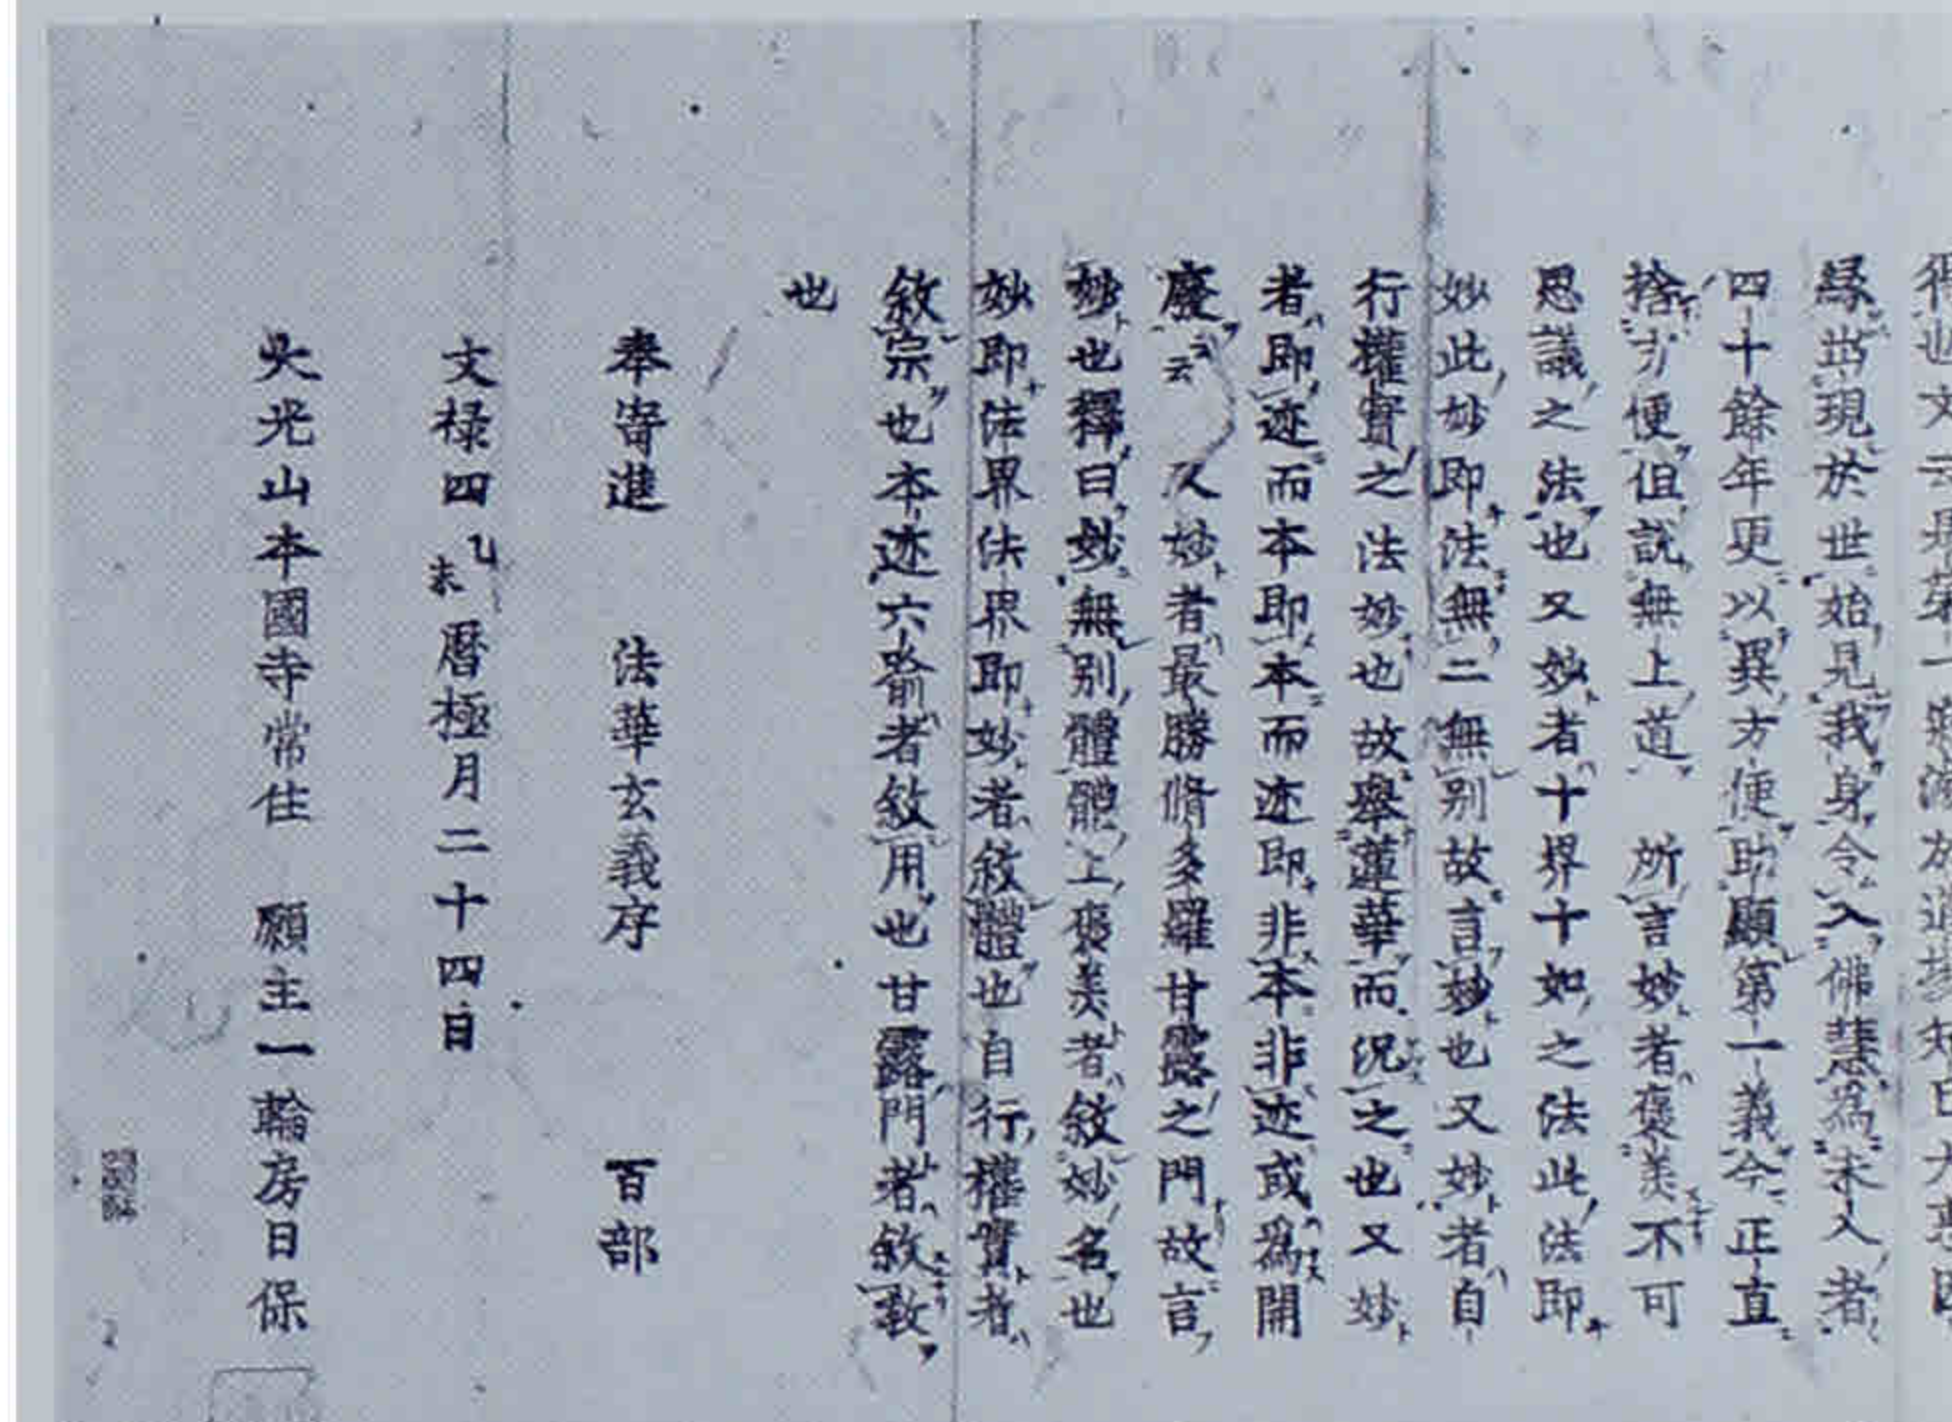 得也文云是第一
縁出現於世始見我身令入佛慧爲未入者
四十餘年更以異方便助顯第一義今正直
捨方便但説無上道　所言妙者褒美不可
思議之法也又妙者十界十如之法此法即
妙此妙即法無二無別故言妙也又妙者自
行權實之法妙也故擧蓮華而況之也又妙
者即迹而本即本而迹即非本非迹或爲開
廢云云　又妙者最勝脩多羅甘露之門故言
妙也釋曰妙無別體體上褒美者敘妙名也
妙即法界法界即妙者敘體也自行權實者
敘宗也本迹六喩者敘用也甘露門者敘教
也
奉寄進　法華玄義序　百部
文禄四乙未暦極月二十四日
大光山本國寺常住　願主一輪房日保